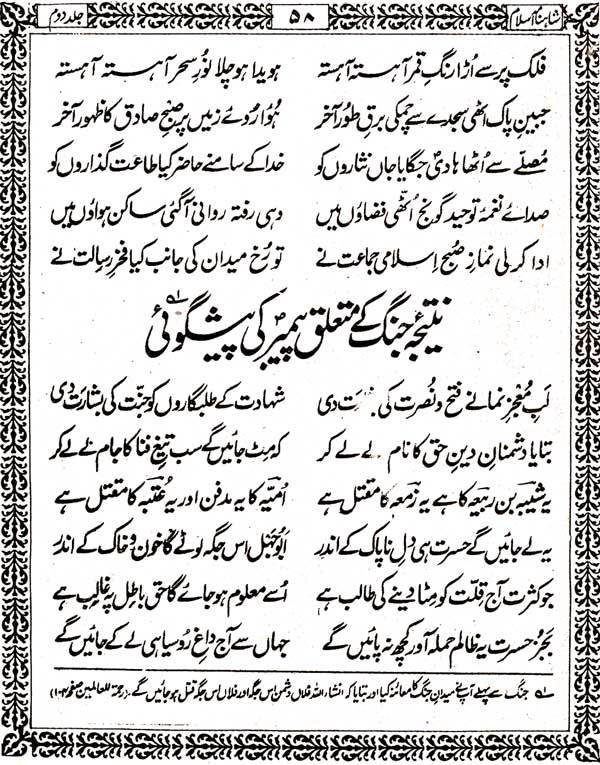 شاہنامۂ اسلام ۵۸ جلد دوم
فلک پر سے اُڑا رنگِ قمر آہستہ آہستہ ہویدا ہو چلا نُورِ سحر آہستہ آہستہ
جبینِ پاک اٹھی سجدے سے چمکی برقِ طُور آخر ہُوا رُوئے زمیں پر صبحِ صادق کا ظہور آخر
مُصلّے سے اُٹھا ہادیؐ جگایا جاں نثاروں کو خدا کے سامنے حاضر کیا طاعت گذاروں کو
صدائے نغمۂ توحید گونج اُٹھی فضاؤں میں وہی رفتہ روانی آ گئی ساکن ہواؤں میں
ادا کر لی نمازِ صُبح اِسلامی جماعت نے تو رُخ میدان کی جانب کیا فخرِ رسالت نے
نتیجۂ جنگ کے متعلق پیمبرؐ کی پیشگوئی ؎۱
لبِ مُعجز نما نے فتح و نُصرت کی دی شہادت کے طلبگاروں کو جنّت کی بشارت دی
بتایا دشمنانِ دینِ حق کا نام لے لے کر کہ مِٹ جائیں گے سب تیغِ فنا کا جام لے لے کر
یہ شیبہ بن ربیعہ کا ہے یہ زمعہ کا مقتل ہے اُمیّہ کا یہ مدفن اور یہ عُتبہ کا مقتل ہے
یہ لے جائیں گے حسرت ہی دلِ ناپاک کے اندر ابُو جہل اس جگہ لوٹے گا خون و خاک کے اندر
جو کثرت آج قلّت کو مِٹا دینے کی طالب ہے اُسے معلوم ہو جائے گا حق باطل پہ غالب ہے
بجُز حسرت یہ ظالم حملہ آور کچھ نہ پائیں گے جہاں سے آج داغِ رُوسیاہی لے کے جائیں گے
؎۱ جنگ سے پہلے آپؐ نے میدانِ جنگ کا معائنہ کیا اور بتایا کہ انشاء اللہ فلاں دشمن اس جگہ اور فلاں اس جگہ قتل ہو جائیں گے۔ (رحمۃ للعالمین صفحہ ۱۰۴)